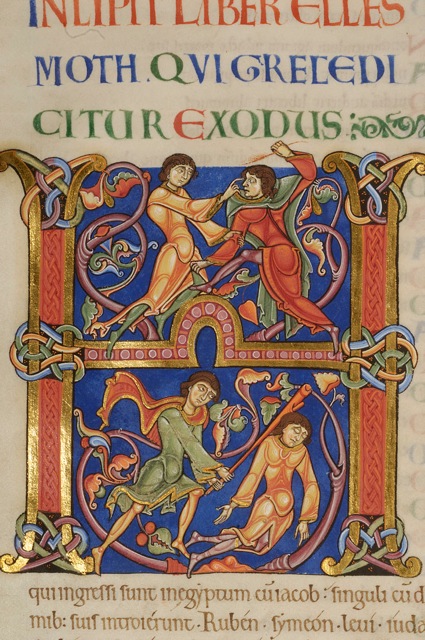 INCIPIT LIBER ELLES
MOTH QVI GRECE DI
CITUR EXODUS :
H
qui ingressi sunt in egẏptum cū iacob : singuli cū d
mib; suis introierunt · Rubén · sẏmeón · leui · iuda